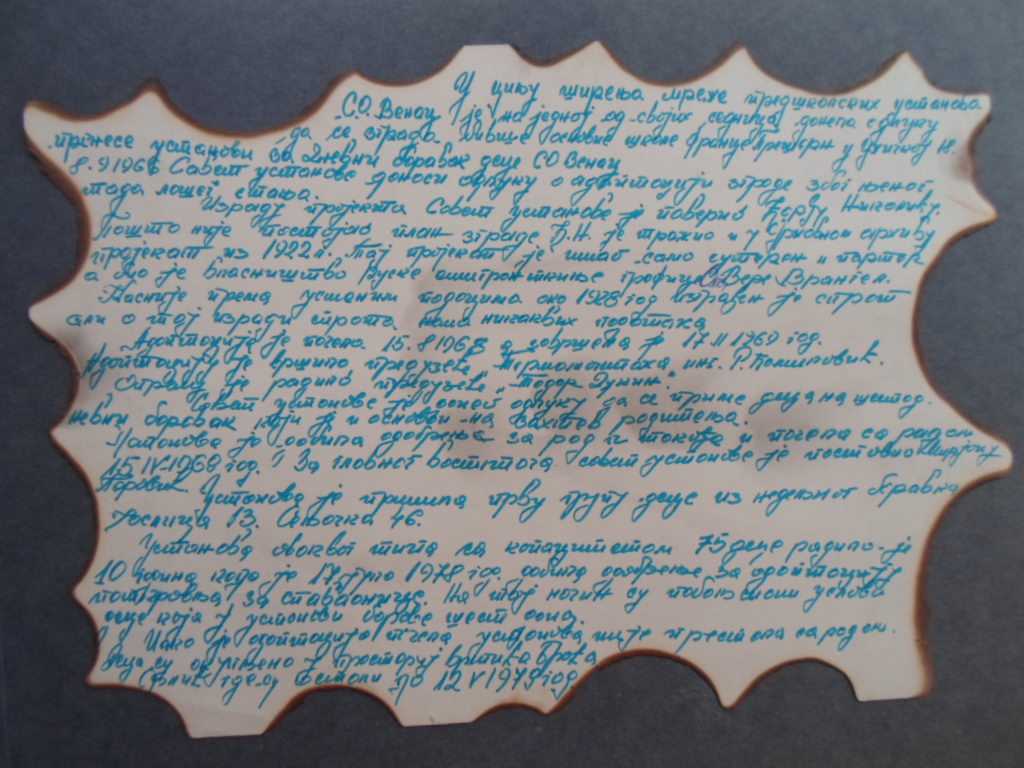 У циљу ширења мреже предшколских установа
С.О. Венац је на једној од својих седница донела одлуку
да се зграда бивше основне школе Франце Прешерн у Ужичкој 18.
пренесе установи за дневни боравак деце СО Венац
8.9 1966 Савет установе доноси одлуку о адаптацији зграде због њеног
тада лошег стања.
Израду пројекта Савет установе је поверио Ђорђу Николићу.
Пошто није постојао план зграде Ђ.Н. је тражио и у архиву
пројекат из 1922 г. Тај пројекат је имао само сутерен и партер
а био је власништво Руске емигранткиње грофице Вере Врангел.
Касније према усменим подацима око 1928 год изграђен је спрат
али о тој изради спрата нема никаквих података
Адаптација је почела 15.8 1968 а завршена је 17 II 1969 год.
Адаптацију је вршило предузеће „Термомонтажа" инж. Р.
Оправку је радило предузеће „Тодор Дукин."
Савет установе је донео одлуку да се приме деца на шестод.
невни боравак који је и основан на захтев родитеља.
Установа је добила одобрење за рад и почела са радом
15 IV 1969 год. За главног васпитача савет установе је поставио
Установа је примила прву групу деце из недељног боравка
13. Сењачка 46.
Установа оваквог типа са капацитетом 75 деце радила је
10 година када је 17. јула 1978 год. добила одобрење за адаптацију
поткровља за спаваонице. На тај начин су побољшани услови
деце која у установи бораве шест дана.
Иако је адаптација почела установа није престала са радом.
Деца су окупљено у просторије вртића
где су остали до 12 V 1979 год